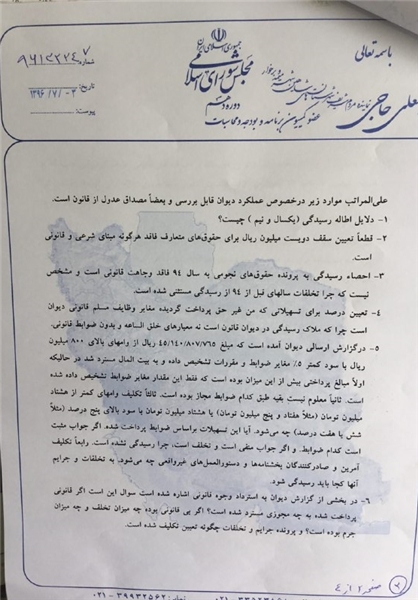 باسمه تعالی
جمهوری اسلامی ایران
مجلس شورای اسلامی
دوره دهم
علی حاجی
عضو کمیسیون برنامه و بودجه و محاسبات
شماره
تاریخ: ۱۳۹۶/۷/۰۳
پیوست:
علی‌المراتب موارد زیر درخصوص عملکرد دیوان قابل بررسی و بعضاً مصداق عدول از قانون است.
۱- دلایل اطاله رسیدگی (یکسال و نیم ) چیست؟
۲- قطعاً تعیین سقف دویست میلیون ریال برای حقوق‌های متعارف فاقد هرگونه مبنای شرعی و قانونی
است.
۳- احصاء رسیدگی به پرونده حقوق‌های نجومی به سال ۹۴ فاقد وجاهت قانونی است و مشخص
نیست که چرا تخلفات سالهای قبل از ۹۴ از رسیدگی مستثنی شده است.
۴- تعیین درصد برای تسهیلاتی که من غیر حق پرداخت گردیده مغایر وظایف مسلم قانونی دیوان
است چرا که ملاک رسیدگی در دیوان قانون است نه معیارهای خلق الساعه و بدون ضوابط قانونی.
۵- درگزارش ارسالی دیوان آمده است که مبلغ ۴۵/۱۴۰/۸۰۷/۷۶۵ ریال از وامهای بالای ۸۰۰ میلیون
ریال با سود کمتر ۵٪ مغایر ضوابط و مقررات تشخیص داده و به بیت المال مسترد شد در حالیکه
اولاً مبالغ پرداختی بیش از این میزان بوده است که فقط این مقدار مغایر ضوابط تشخیص داده شده
است. ثانیاً معلوم نیست بقیه طبق کدام ضوابط مجاز بوده است. ثالثاً تکلیف وامهای کمتر از هشتاد
میلیون تومان (مثلاً هفتاد و پنج میلیون تومان) یا هشتاد میلیون تومان با سود بالای پنج درصد (مثلاً
شش یا هفت درصد) چه می‌شود. آیا این تسهیلات براساس ضوابط پرداخت شده. اگر جواب مثبت
است کدام ضوابط. و اگر جواب منفی است و تخلف است، چرا رسیدگی نشده است. رابعاً تکلیف
آمرین و صادرکنندگان بخشنامه‌ها و دستورالعمل‌های غیرواقعی چه می‌شود. به تخلفات و جرایم
آنها کجا باید رسیدگی شود.
۶- در بخشی از گزارش دیوان به استرداد وجوه قانونی اشاره شده است سوال این است اگر قانونی
پرداخت شده به چه مجوزی مسترد شده است؟ اگر بی قانونی بوده چه میزان تخلف و چه میزان
جرم بوده است؟ و پرونده جرایم و تخلفات چگونه تعیین تکلیف شده است.
صفحه ۲ از ٤